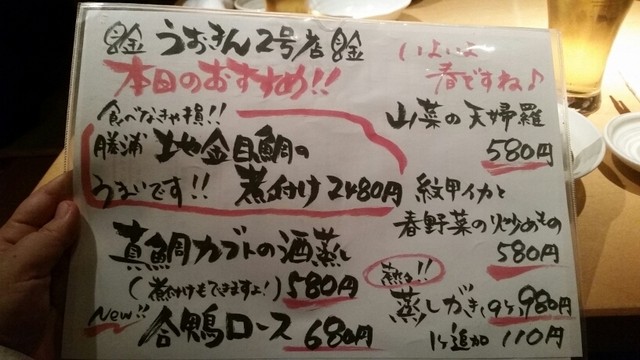 魚金 うおきん2号店 魚金
本日のおすすめ!!
いよいよ
春ですね♪
食べなきゃ損!!
勝浦 地金目鯛の
うまいです!! 煮付け 2480円
真鯛カブトの酒蒸し
(煮付けもできますよ!) 580円
New!! 合鴨ロース 680円
山菜の天婦羅
580円
紋甲イカと
春野菜の炒めもの
580円
蒸しがき 980円
1ヶ追加 110円